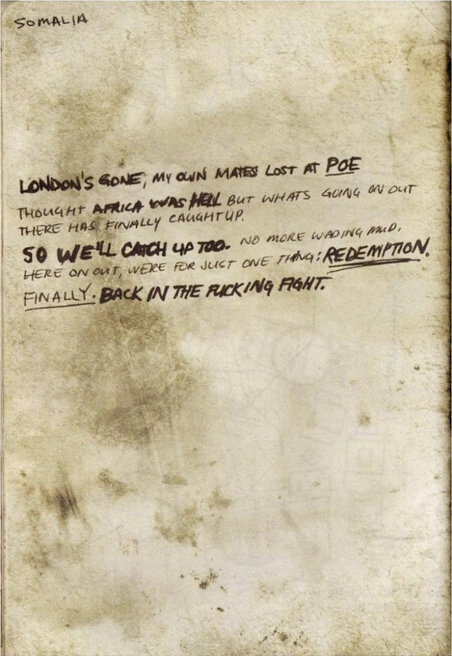 SOMALIA
LONDON'S GONE, MY OWN MATES LOST AT POE
THOUGHT AFRICA WAS HELL BUT WHATS GOING ON OUT
THERE HAS FINALLY CAUGHT UP.
SO WE'LL CATCH UP TOO. NO MORE WADING MUD.
HERE ON OUT, WE'RE FOR JUST ONE THING: REDEMPTION.
FINALLY. BACK IN THE FUCKING FIGHT.